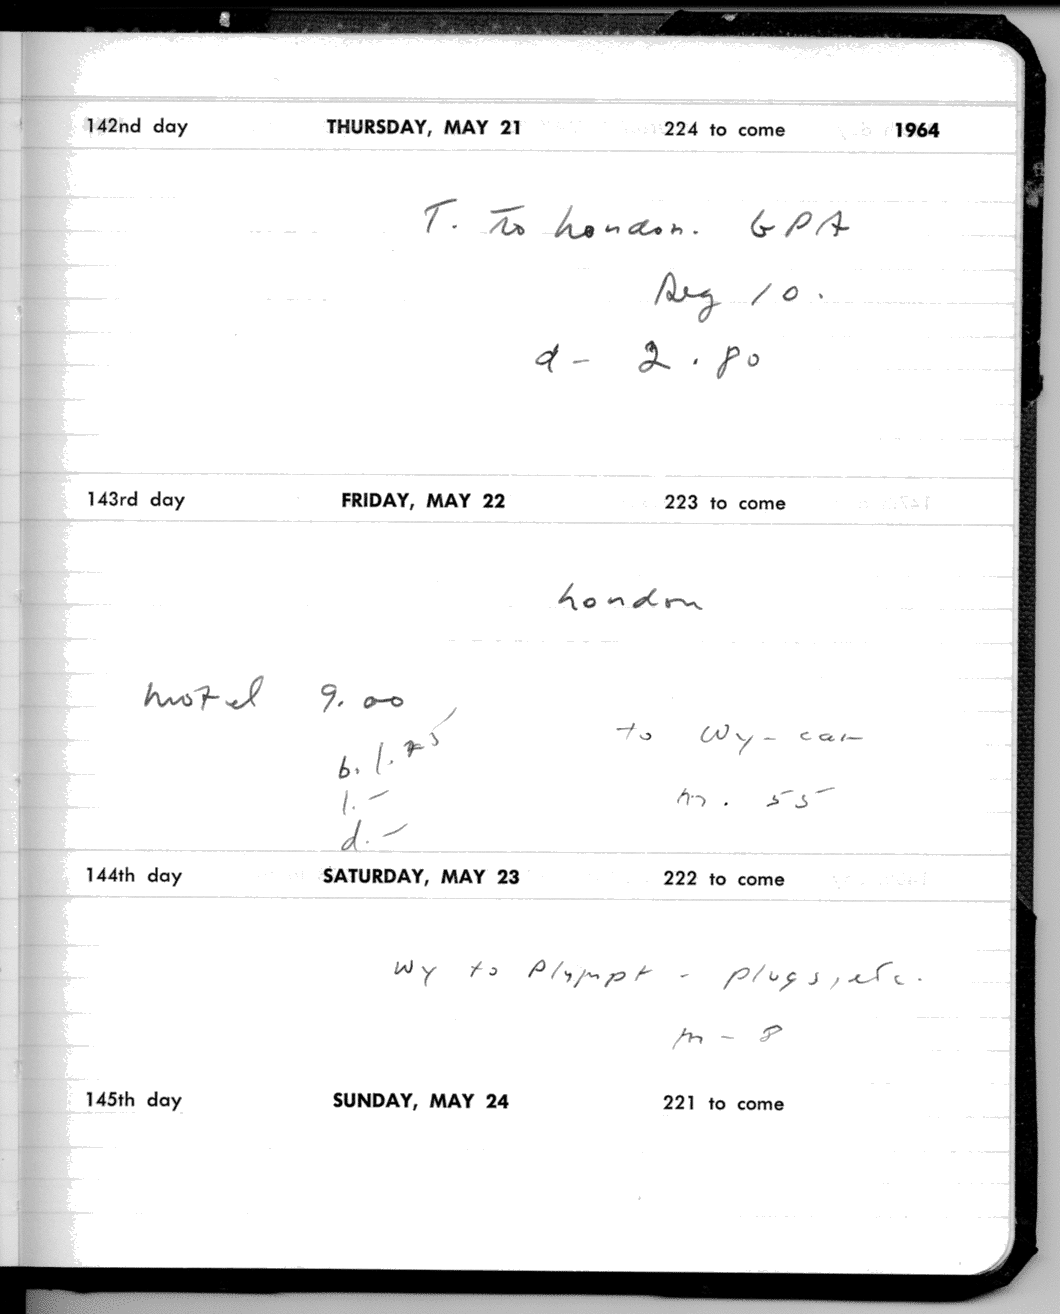 142nd day THURSDAY, MAY 21 224 to come 1964
T. to London. GPA
Reg 10.
d - 2.80
143rd day FRIDAY, MAY 22 223 to come
London
motel 9.00
b. 1.75
to Wy - car
l. -
m. 55
d. -
144th day SATURDAY, MAY 23 222 to come
Wy to Plympt - plugs, etc.
m - 8
145th day SUNDAY, MAY 24 221 to come